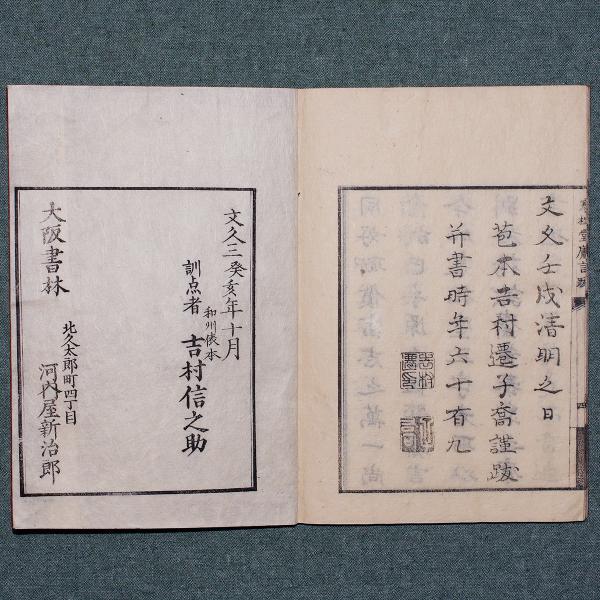 文久壬戌清明之日
芭本吉村遷子喬謹跋
并書時年六十有九
四
文久三癸亥年十月
訓点者 和州俵本 吉村信之助
大阪書林
北久太郎町四丁目
河内屋新治郎